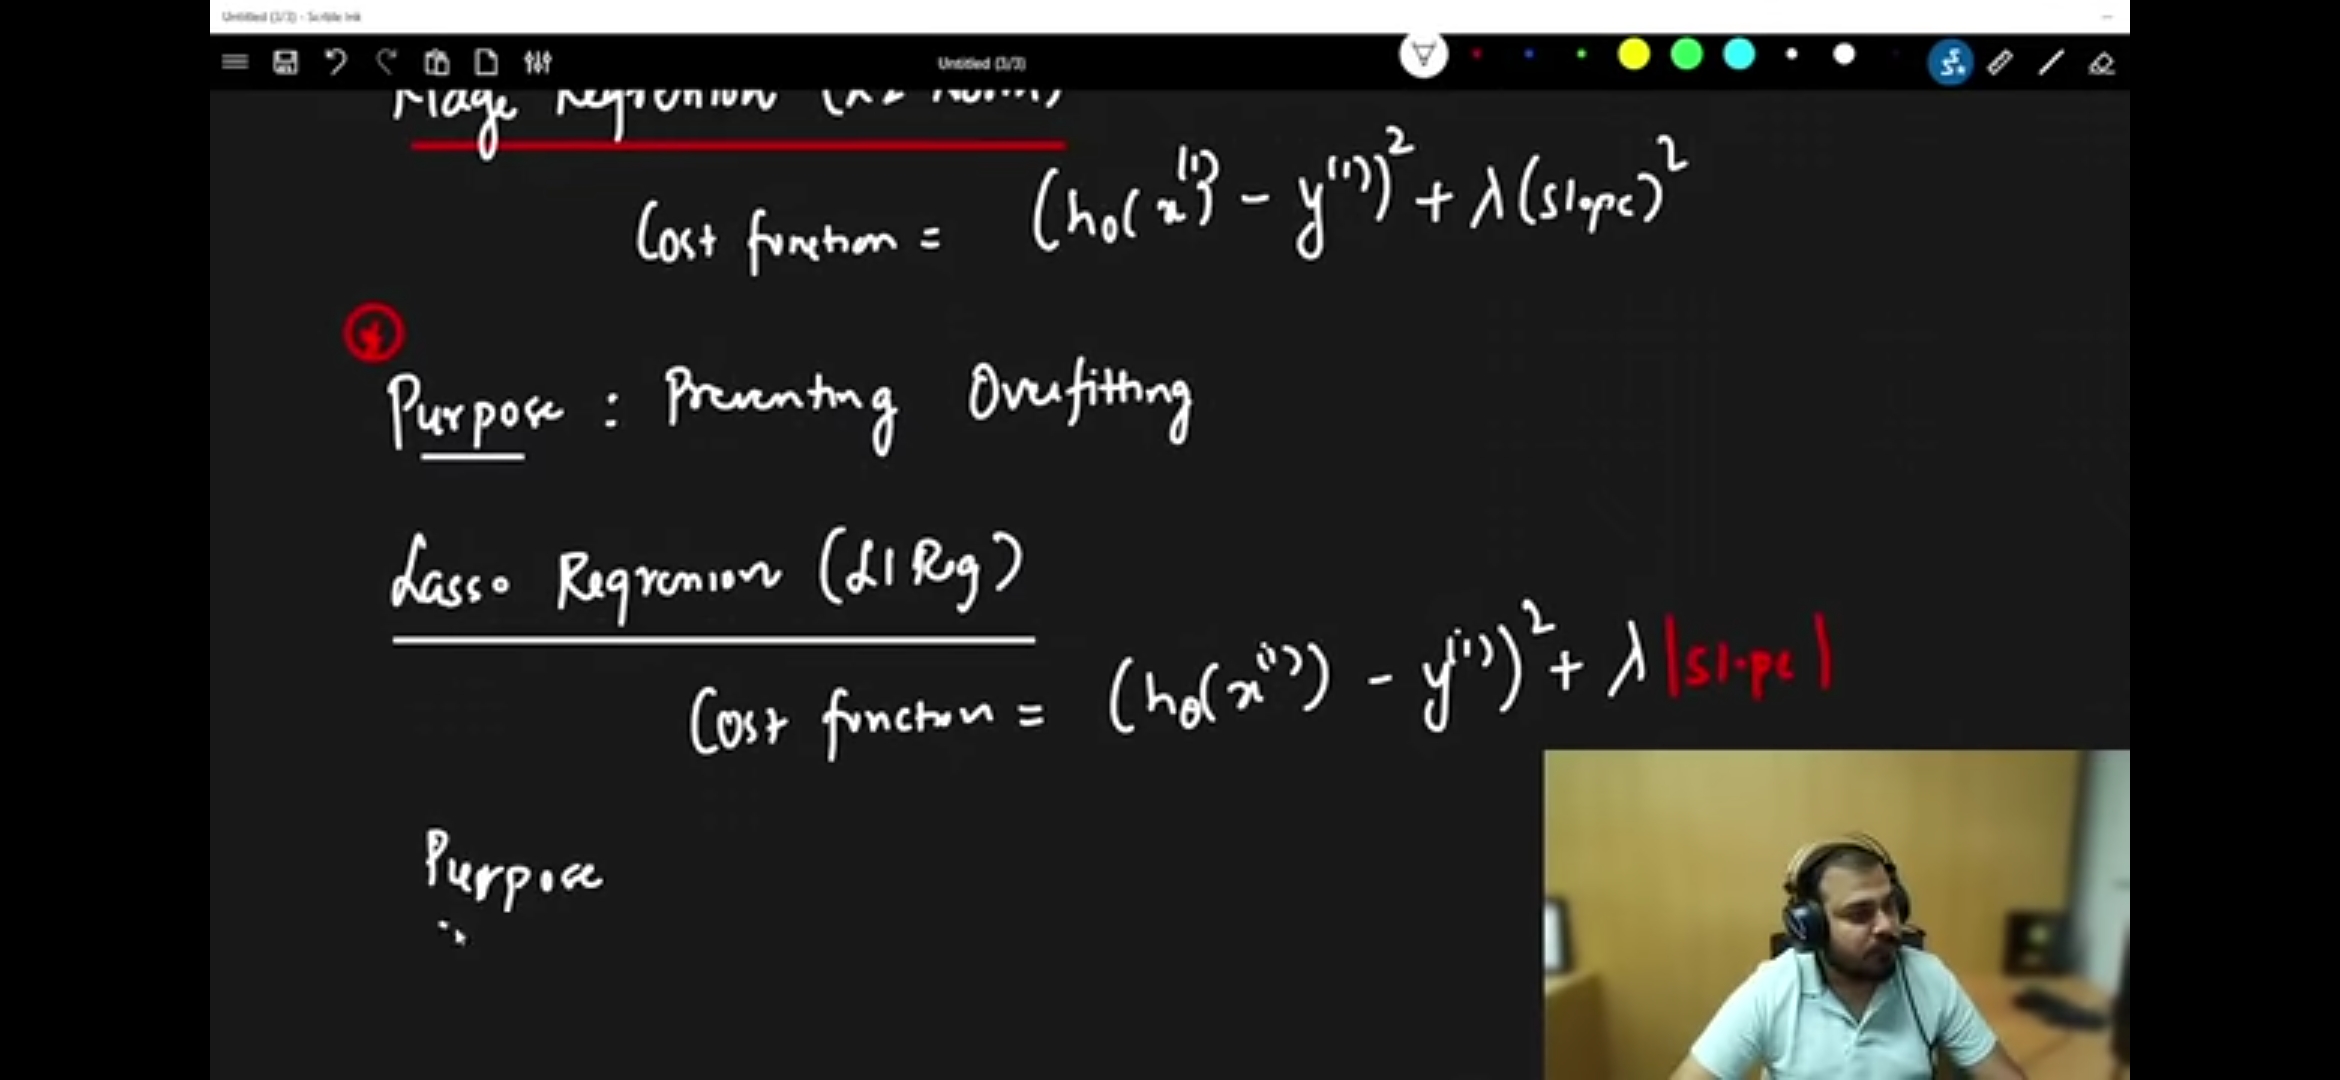 Untitled (3/3) - Scribble Ink
Untitled (3/3)
Ridge Regression (L2 Norm)
Cost function = (hθ(x⁽ⁱ⁾) - y⁽ⁱ⁾)² + λ(slope)²
Purpose : Preventing Overfitting
Lasso Regression (L1 Reg)
Cost function = (hθ(x⁽ⁱ⁾) - y⁽ⁱ⁾)² + λ|slope|
Purpose